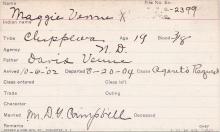 Name Maggie Venne X File No. 2399
Indian name
Tribe Chippewa Age 19 Blood 3/8
Agency N.D.
Father Davis Venne
Arrived 10-6-02 Departed 8-20-04 Cause Agent's Request
Class entered Class left
Trade Outing
Character
Married Mr. D. G. Campbell Deceased
Remarks